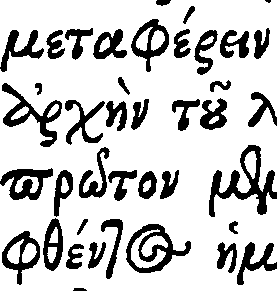 μεταφέρειν
ἀρχὴν τοῦ λ
πρῶτον μ
φθέν ἡμ